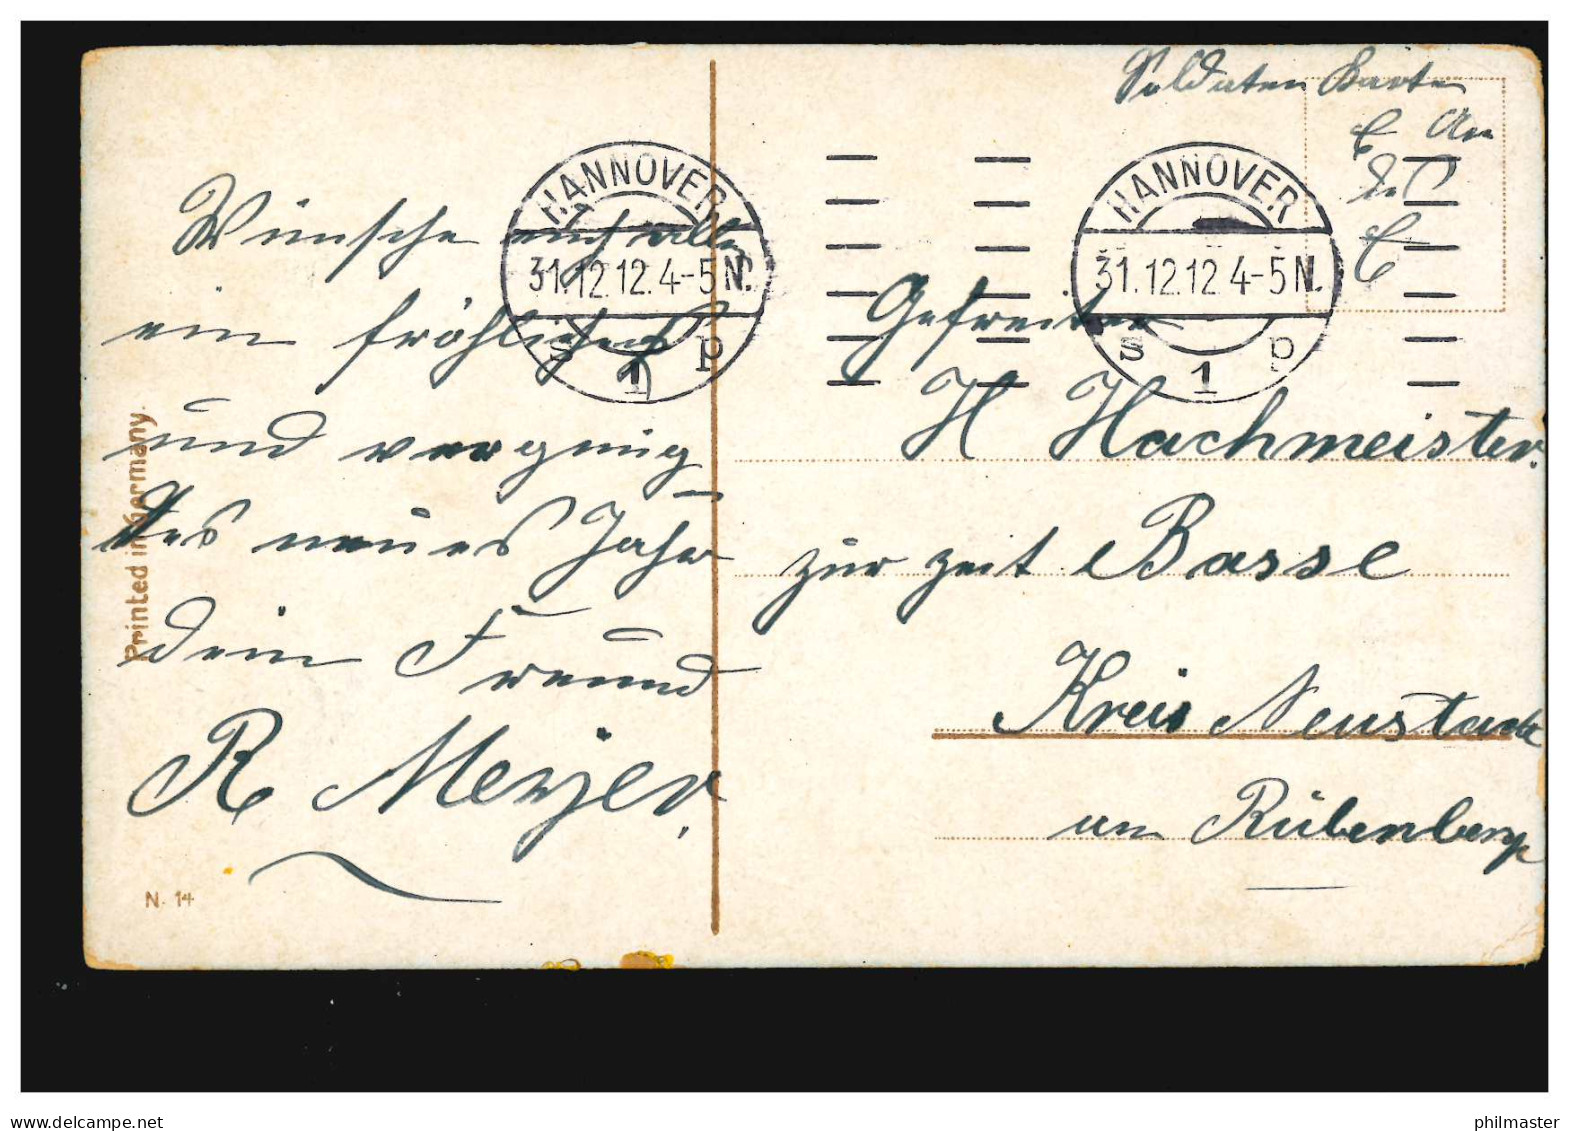 Soldaten Karte
HANNOVER
31.12.12.4-5 N.
s 1 p
HANNOVER
31.12.12 4-5 N.
s 1 p
Wünsche euch alle
ein fröhliches
und vergnüg
tes neues Jahr
dein Freund
R Meyer.
Gefreiter
H Hachmeister.
zur zeit Basse
Kreis Neustadt
am Rübenberge
Printed in Germany.
N. 14
www.delcampe.net
philmaster